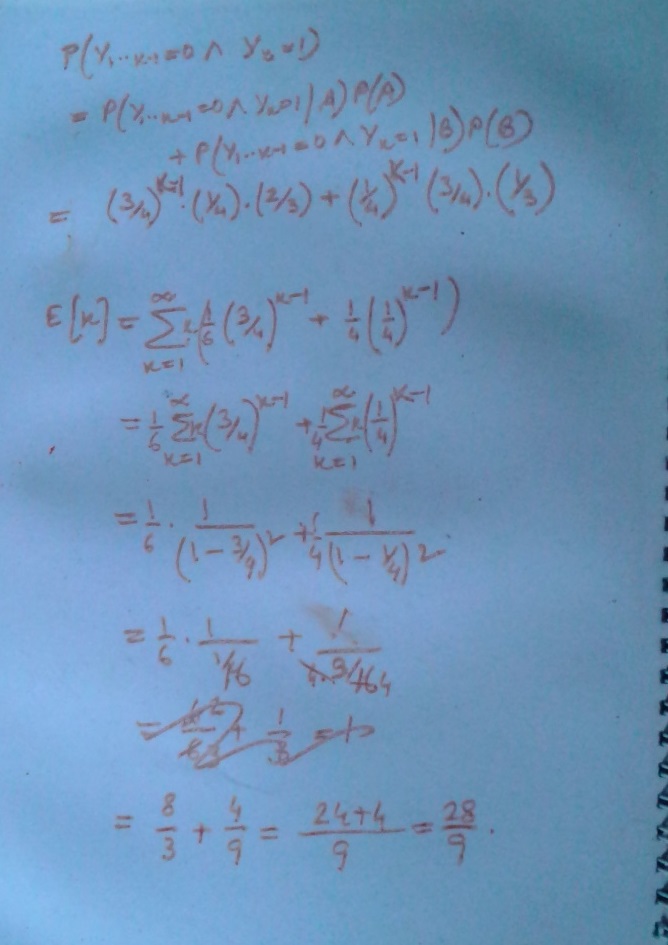 P(Y₁...ₖ₋₁=0 ∧ Yₖ=1)
= P(Y₁...ₖ₋₁=0 ∧ Yₖ=1 | A) P(A)
+ P(Y₁...ₖ₋₁=0 ∧ Yₖ=1 | B) P(B)
= (3/4)^(k-1) · (1/4) · (2/3) + (1/4)^(k-1) (3/4) · (1/3)
E[k] = ∑_{k=1}^{∞} k (1/6 (3/4)^(k-1) + 1/4 (1/4)^(k-1))
= 1/6 ∑_{k=1}^{∞} k (3/4)^(k-1) + 1/4 ∑_{k=1}^{∞} k (1/4)^(k-1)
= 1/6 · 1/(1 - 3/4)² + 1/4 1/(1 - 1/4)²
= 1/6 · 1/(1/16) + 1/(4 · 9/16 4)
= 8/3 + 4/9 = (24+4)/9 = 28/9 .